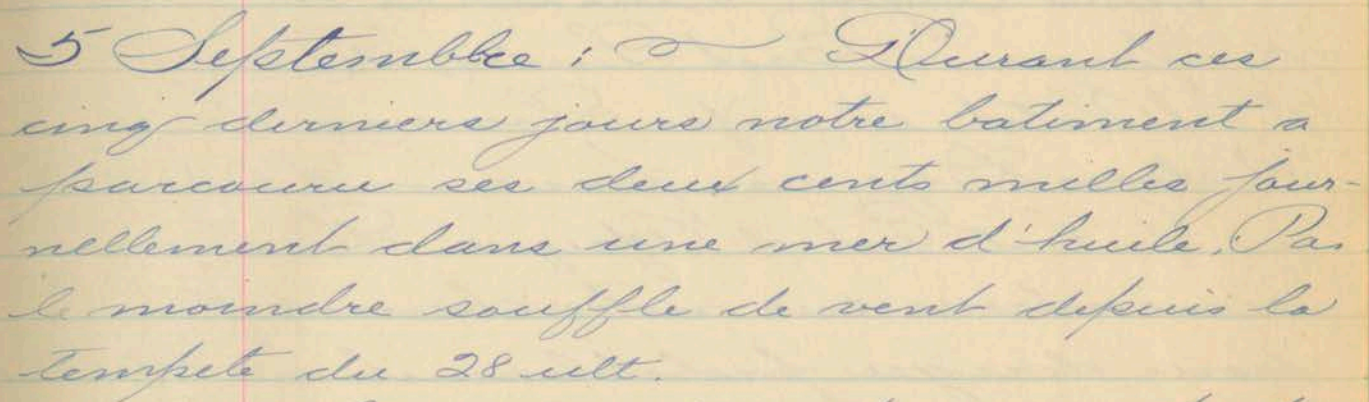 5 Septembre : Durant ces
cinq derniers jours notre batiment a
parcouru ses deux cents milles jour-
nellement dans une mer d'huile. Pas
le moindre souffle de vent depuis la
tempete du 28 ult.